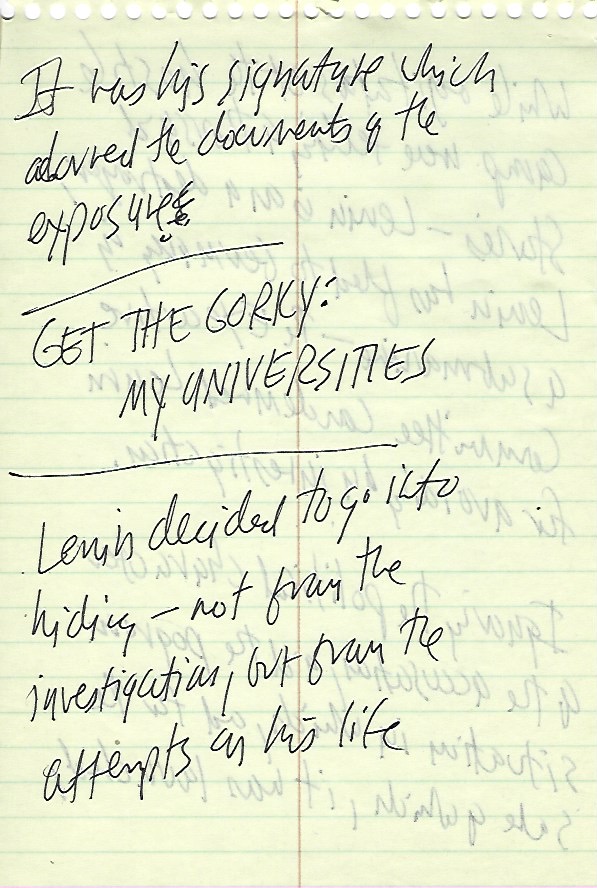 It was his signature which
adorned the documents of the
exposure
GET THE GORKY:
MY UNIVERSITIES
Lenin decided to go into
hiding — not from the
investigation, but from the
attempts on his life